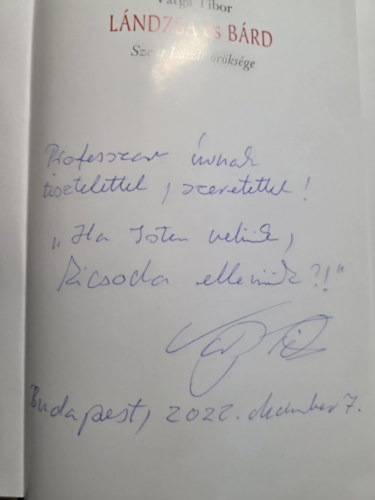 Varga Tibor
LÁNDZSA és BÁRD
Szent László öröksége
Professzor úrnak
tisztelettel, szeretettel!
„Ha Isten velünk,
kicsoda ellenünk?!"
Budapest, 2022. december 7.